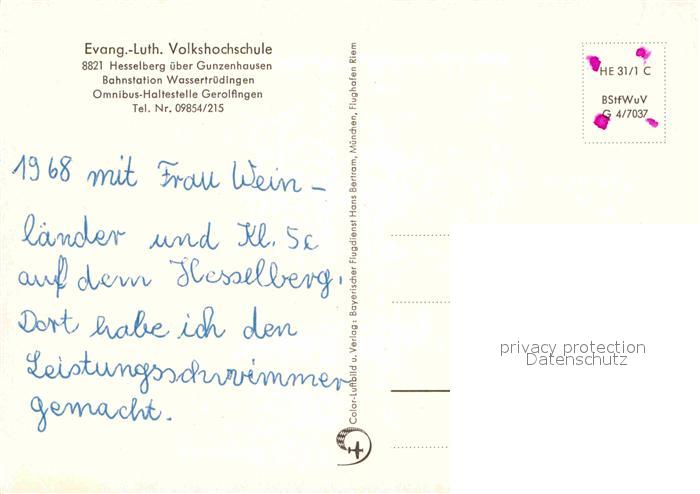 Evang.-Luth. Volkshochschule
8821 Hesselberg über Gunzenhausen
Bahnstation Wassertrüdingen
Omnibus-Haltestelle Gerolfingen
Tel. Nr. 09854/215
HE 31/1 C
BStfWuV
G 4/7037
1968 mit Frau Wein-
länder und Kl. 5c
auf dem Hesselberg.
Dort habe ich den
Leistungsschwimmer
gemacht.
Color-Luftbild u. Verlag: Bayerischer Flugdienst Hans Bertram, München, Flughafen Riem
privacy protection
Datenschutz